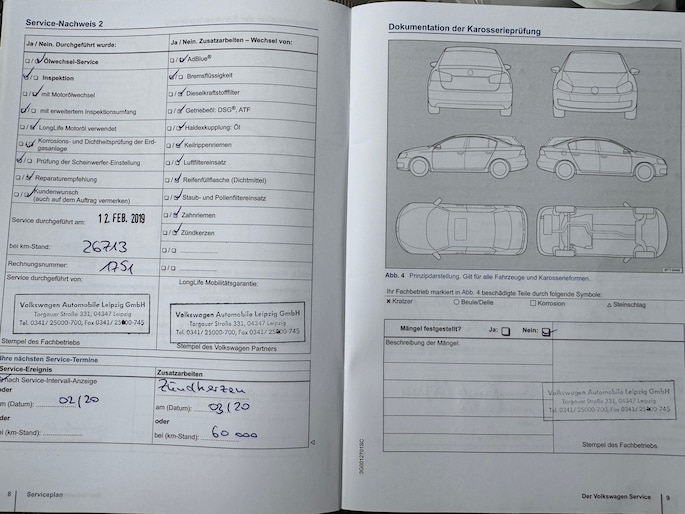 Service-Nachweis 2
Ja / Nein. Durchgeführt wurde:
Ölwechsel-Service
Inspektion
mit Motorölwechsel
mit erweitertem Inspektionsumfang
LongLife Motoröl verwendet
Korrosions- und Dichtheitsprüfung der Erd-
gasanlage
Prüfung der Scheinwerfer-Einstellung
Reparaturempfehlung
Kundenwunsch
(auch auf dem Auftrag vermerken)
Service durchgeführt am: 12. FEB. 2019
bei km-Stand: 26713
Rechnungsnummer: 1751
Service durchgeführt von:
Volkswagen Automobile Leipzig GmbH
Torgauer Straße 331, 04347 Leipzig
Tel. 0341/ 25000-700, Fax 0341/ 25000-745
Stempel des Fachbetriebs
Ja / Nein. Zusatzarbeiten – Wechsel von:
AdBlue®
Bremsflüssigkeit
Dieselkraftstofffilter
Getriebeöl: DSG®, ATF
Haldexkupplung: Öl
Keilrippenriemen
Luftfiltereinsatz
Reifenfüllflasche (Dichtmittel)
Staub- und Pollenfiltereinsatz
Zahnriemen
Zündkerzen
LongLife Mobilitätsgarantie:
Volkswagen Automobile Leipzig GmbH
Torgauer Straße 331, 04347 Leipzig
Tel. 0341/ 25000-700, Fax 0341/ 25000-745
Stempel des Volkswagen Partners
Ihre nächsten Service-Termine
Service-Ereignis
nach Service-Intervall-Anzeige
oder
am (Datum): 02/20
oder
bei (km-Stand):
Zusatzarbeiten
Zündkerzen
am (Datum): 03/20
oder
bei (km-Stand): 60 000
8 Serviceplan
Dokumentation der Karosserieprüfung
Abb. 4 Prinzipdarstellung. Gilt für alle Fahrzeuge und Karosserieformen.
Ihr Fachbetrieb markiert in Abb. 4 beschädigte Teile durch folgende Symbole:
× Kratzer ○ Beule/Delle □ Korrosion △ Steinschlag
Mängel festgestellt? Ja: Nein:
Beschreibung der Mängel:
Volkswagen Automobile Leipzig GmbH
Torgauer Straße 331, 04347 Leipzig
Tel. 0341/ 25000-700, Fax 0341/ 25000-745
Stempel des Fachbetriebs
Der Volkswagen Service 9